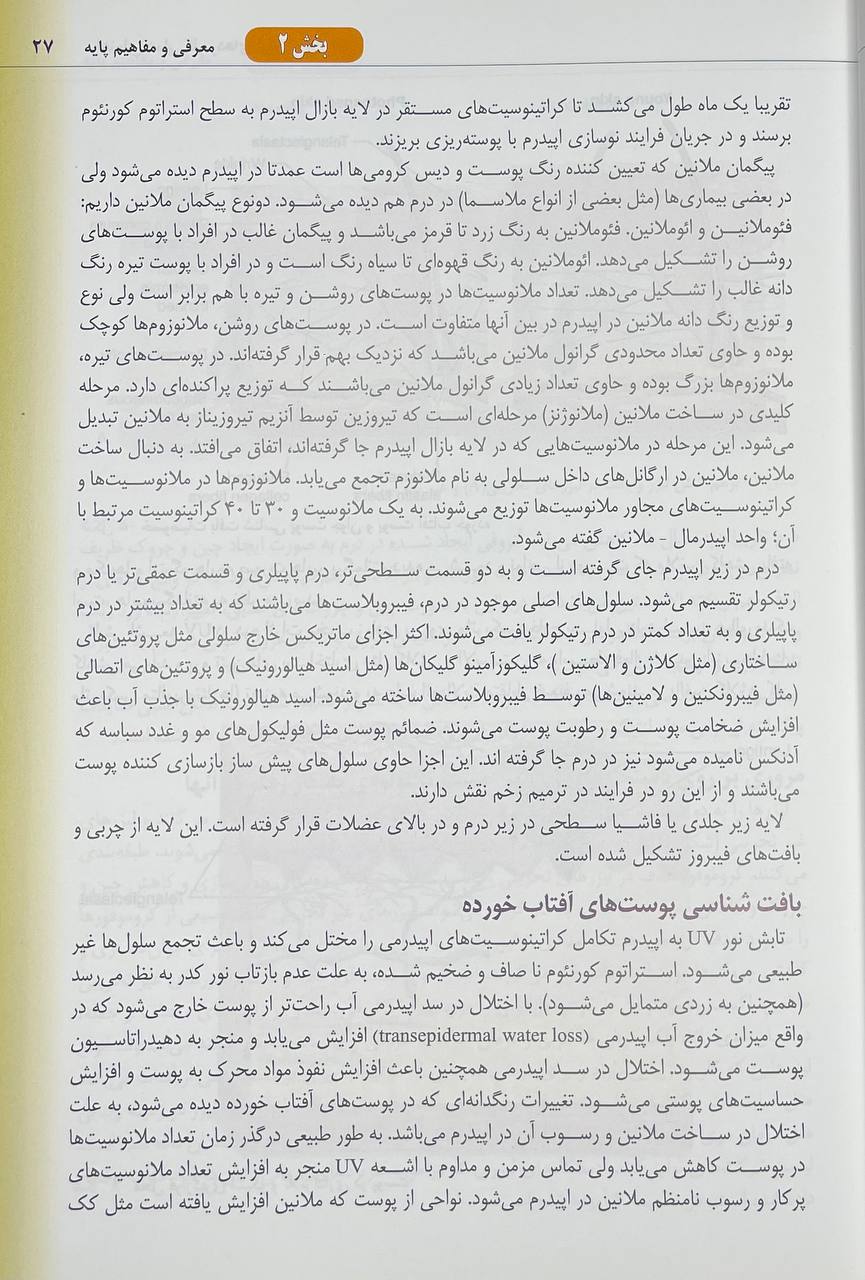 بخش ۲ معرفی و مفاهیم پایه ۲۷
تقریبا یک ماه طول می‌کشد تا کراتینوسیت‌های مستقر در لایه بازال اپیدرم به سطح استراتوم کورنئوم
برسند و در جریان فرایند نوسازی اپیدرم با پوسته‌ریزی بریزند.
پیگمان ملانین که تعیین کننده رنگ پوست و دیس کرومی‌ها است عمدتا در اپیدرم دیده می‌شود ولی
در بعضی بیماری‌ها (مثل بعضی از انواع ملاسما) در درم هم دیده می‌شود. دونوع پیگمان ملانین داریم:
فئوملانین و ائوملانین. فئوملانین به رنگ زرد تا قرمز می‌باشد و پیگمان غالب در افراد با پوست‌های
روشن را تشکیل می‌دهد. ائوملانین به رنگ قهوه‌ای تا سیاه رنگ است و در افراد با پوست تیره رنگ
دانه غالب را تشکیل می‌دهد. تعداد ملانوسیت‌ها در پوست‌های روشن و تیره با هم برابر است ولی نوع
و توزیع رنگ دانه ملانین در اپیدرم در بین آنها متفاوت است. در پوست‌های روشن، ملانوزوم‌ها کوچک
بوده و حاوی تعداد محدودی گرانول ملانین می‌باشد که نزدیک بهم قرار گرفته‌اند. در پوست‌های تیره،
ملانوزوم‌ها بزرگ بوده و حاوی تعداد زیادی گرانول ملانین می‌باشند که توزیع پراکنده‌ای دارد. مرحله
کلیدی در ساخت ملانین (ملانوژنز) مرحله‌ای است که تیروزین توسط آنزیم تیروزیناز به ملانین تبدیل
می‌شود. این مرحله در ملانوسیت‌هایی که در لایه بازال اپیدرم جا گرفته‌اند، اتفاق می‌افتد. به دنبال ساخت
ملانین، ملانین در ارگانل‌های داخل سلولی به نام ملانوزم تجمع می‌یابد. ملانوزوم‌ها در ملانوسیت‌ها و
کراتینوسیت‌های مجاور ملانوسیت‌ها توزیع می‌شوند. به یک ملانوسیت و ۳۰ تا ۴۰ کراتینوسیت مرتبط با
آن؛ واحد اپیدرمال - ملانین گفته می‌شود.
درم در زیر اپیدرم جای گرفته است و به دو قسمت سطحی‌تر، درم پاپیلری و قسمت عمقی‌تر یا درم
رتیکولر تقسیم می‌شود. سلول‌های اصلی موجود در درم، فیبروبلاست‌ها می‌باشند که به تعداد بیشتر در درم
پاپیلری و به تعداد کمتر در درم رتیکولر یافت می‌شوند. اکثر اجزای ماتریکس خارج سلولی مثل پروتئین‌های
ساختاری (مثل کلاژن و الاستین )، گلیکوزآمینو گلیکان‌ها (مثل اسید هیالورونیک) و پروتئین‌های اتصالی
(مثل فیبرونکنین و لامینین‌ها) توسط فیبروبلاست‌ها ساخته می‌شود. اسید هیالورونیک با جذب آب باعث
افزایش ضخامت پوست و رطوبت پوست می‌شوند. ضمائم پوست مثل فولیکول‌های مو و غدد سباسه که
آدنکس نامیده می‌شود نیز در درم جا گرفته اند. این اجزا حاوی سلول‌های پیش ساز بازسازی کننده پوست
می‌باشند و از این رو در فرایند در ترمیم زخم نقش دارند.
لایه زیر جلدی یا فاشیا سطحی در زیر درم و در بالای عضلات قرار گرفته است. این لایه از چربی و
بافت‌های فیبروز تشکیل شده است.
بافت شناسی پوست‌های آفتاب خورده
تابش نور UV به اپیدرم تکامل کراتینوسیت‌های اپیدرمی را مختل می‌کند و باعث تجمع سلول‌ها غیر
طبیعی می‌شود. استراتوم کورنئوم نا صاف و ضخیم شده، به علت عدم بازتاب نور کدر به نظر می‌رسد
(همچنین به زردی متمایل می‌شود). با اختلال در سد اپیدرمی آب راحت‌تر از پوست خارج می‌شود که در
واقع میزان خروج آب اپیدرمی (transepidermal water loss) افزایش می‌یابد و منجر به دهیدراتاسیون
پوست می‌شود. اختلال در سد اپیدرمی همچنین باعث افزایش نفوذ مواد محرک به پوست و افزایش
حساسیت‌های پوستی می‌شود. تغییرات رنگدانه‌ای که در پوست‌های آفتاب خورده دیده می‌شود، به علت
اختلال در ساخت ملانین و رسوب آن در اپیدرم می‌باشد. به طور طبیعی درگذر زمان تعداد ملانوسیت‌ها
در پوست کاهش می‌یابد ولی تماس مزمن و مداوم با اشعه UV منجر به افزایش تعداد ملانوسیت‌های
پرکار و رسوب نامنظم ملانین در اپیدرم می‌شود. نواحی از پوست که ملانین افزایش یافته است مثل کک